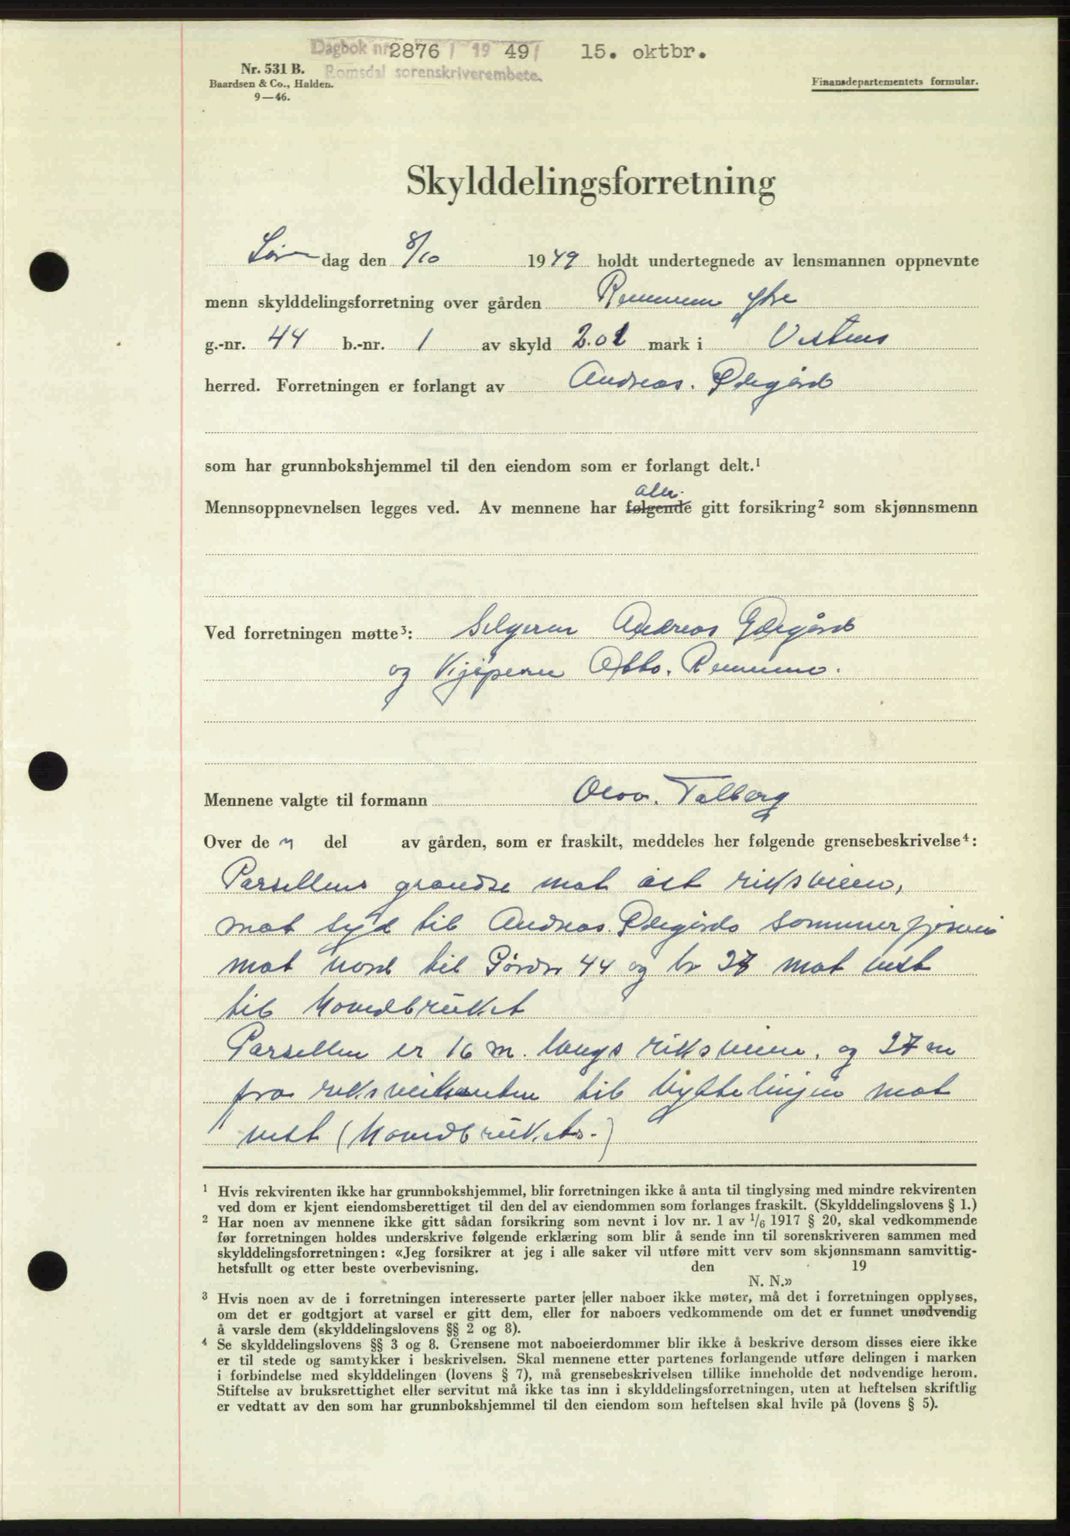 Dagbok nr. 2876 / 19 49 / 15. oktbr.
Romsdal sorenskriverembete.
Nr. 531 B.
Baardsen & Co., Halden.
9—46.
Finansdepartementets formular.
Skylddelingsforretning
Lør dag den 8/10 1949 holdt undertegnede av lensmannen oppnevnte
menn skylddelingsforretning over gården Remmem ytre
g.-nr. 44 b.-nr. 1 av skyld 2.01 mark i Vestnes
herred. Forretningen er forlangt av Andreas. Ødegård
som har grunnbokshjemmel til den eiendom som er forlangt delt.¹
alle
Mennsoppnevnelsen legges ved. Av mennene har følgende gitt forsikring² som skjønnsmenn
Ved forretningen møtte³: Selgeren Andreas Ødegård
og Kjøperen Otto. Remmem.
Mennene valgte til formann Olav. Talberg
Over de n del av gården, som er fraskilt, meddeles her følgende grensebeskrivelse⁴:
Parsellens grendse mot øst riksveien,
mot syd til Andreas. Ødegårds sommerfjøsvei
mot nord til Gårdnr 44 og br 27 mot vest
til Hovedbruket
Parsellen er 16 m. langs riksveien, og 27 m
fra riksveikanten til byttelinjen mot
vest (Hovedbrukets.)
¹ Hvis rekvirenten ikke har grunnbokshjemmel, blir forretningen ikke å anta til tinglysing med mindre rekvirenten
ved dom er kjent eiendomsberettiget til den del av eiendommen som forlanges fraskilt. (Skylddelingslovens § 1.)
² Har noen av mennene ikke gitt sådan forsikring som nevnt i lov nr. 1 av 1/6 1917 § 20, skal vedkommende
før forretningen holdes underskrive følgende erklæring som blir å sende inn til sorenskriveren sammen med
skylddelingsforretningen: «Jeg forsikrer at jeg i alle saker vil utføre mitt verv som skjønnsmann samvittig-
hetsfullt og etter beste overbevisning. den 19
N. N.»
³ Hvis noen av de i forretningen interesserte parter eller naboer ikke møter, må det i forretningen opplyses,
om det er godtgjort at varsel er gitt dem, eller for naboers vedkommende om det er funnet unødvendig
å varsle dem (skylddelingslovens §§ 2 og 8).
⁴ Se skylddelingslovens §§ 3 og 8. Grensene mot naboeierdommer blir ikke å beskrive dersom disses eiere ikke
er til stede og samtykker i beskrivelsen. Skal mennene etter partenes forlangende utføre delingen i marken
i forbindelse med skylddelingen (lovens § 7), må grensebeskrivelsen tillike inneholde det nødvendige herom.
Stiftelse av bruksrettighet eller servitut må ikke tas inn i skylddelingsforretningen, uten at heftelsen skriftlig
er vedtatt av den som har grunnbokshjemmel til den eiendom som heftelsen skal hvile på (lovens § 5).